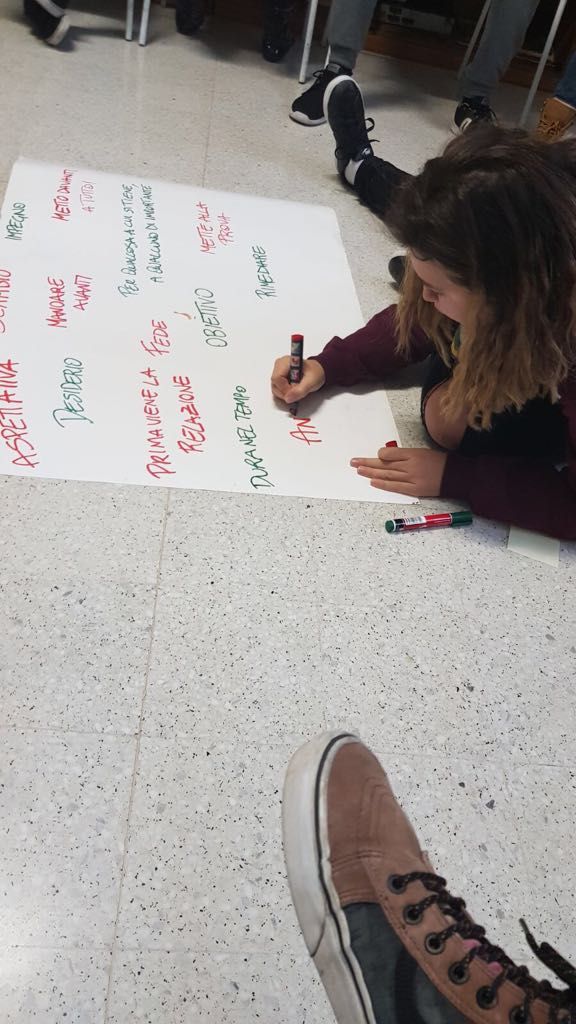 ASPETTATIVA
IMPEGNO
DESIDERIO
MANDARE
AVANTI
METTO DAVANTI
A TUTTO
PER QUALCOSA A CUI SI TIENE,
A QUALCUNO DI IMPORTANTE
PRIMA VIENE LA FEDE
RELAZIONE
OBIETTIVO
METTE ALLA
PROVA
DURA NEL TEMPO
RIMEDIARE
AN